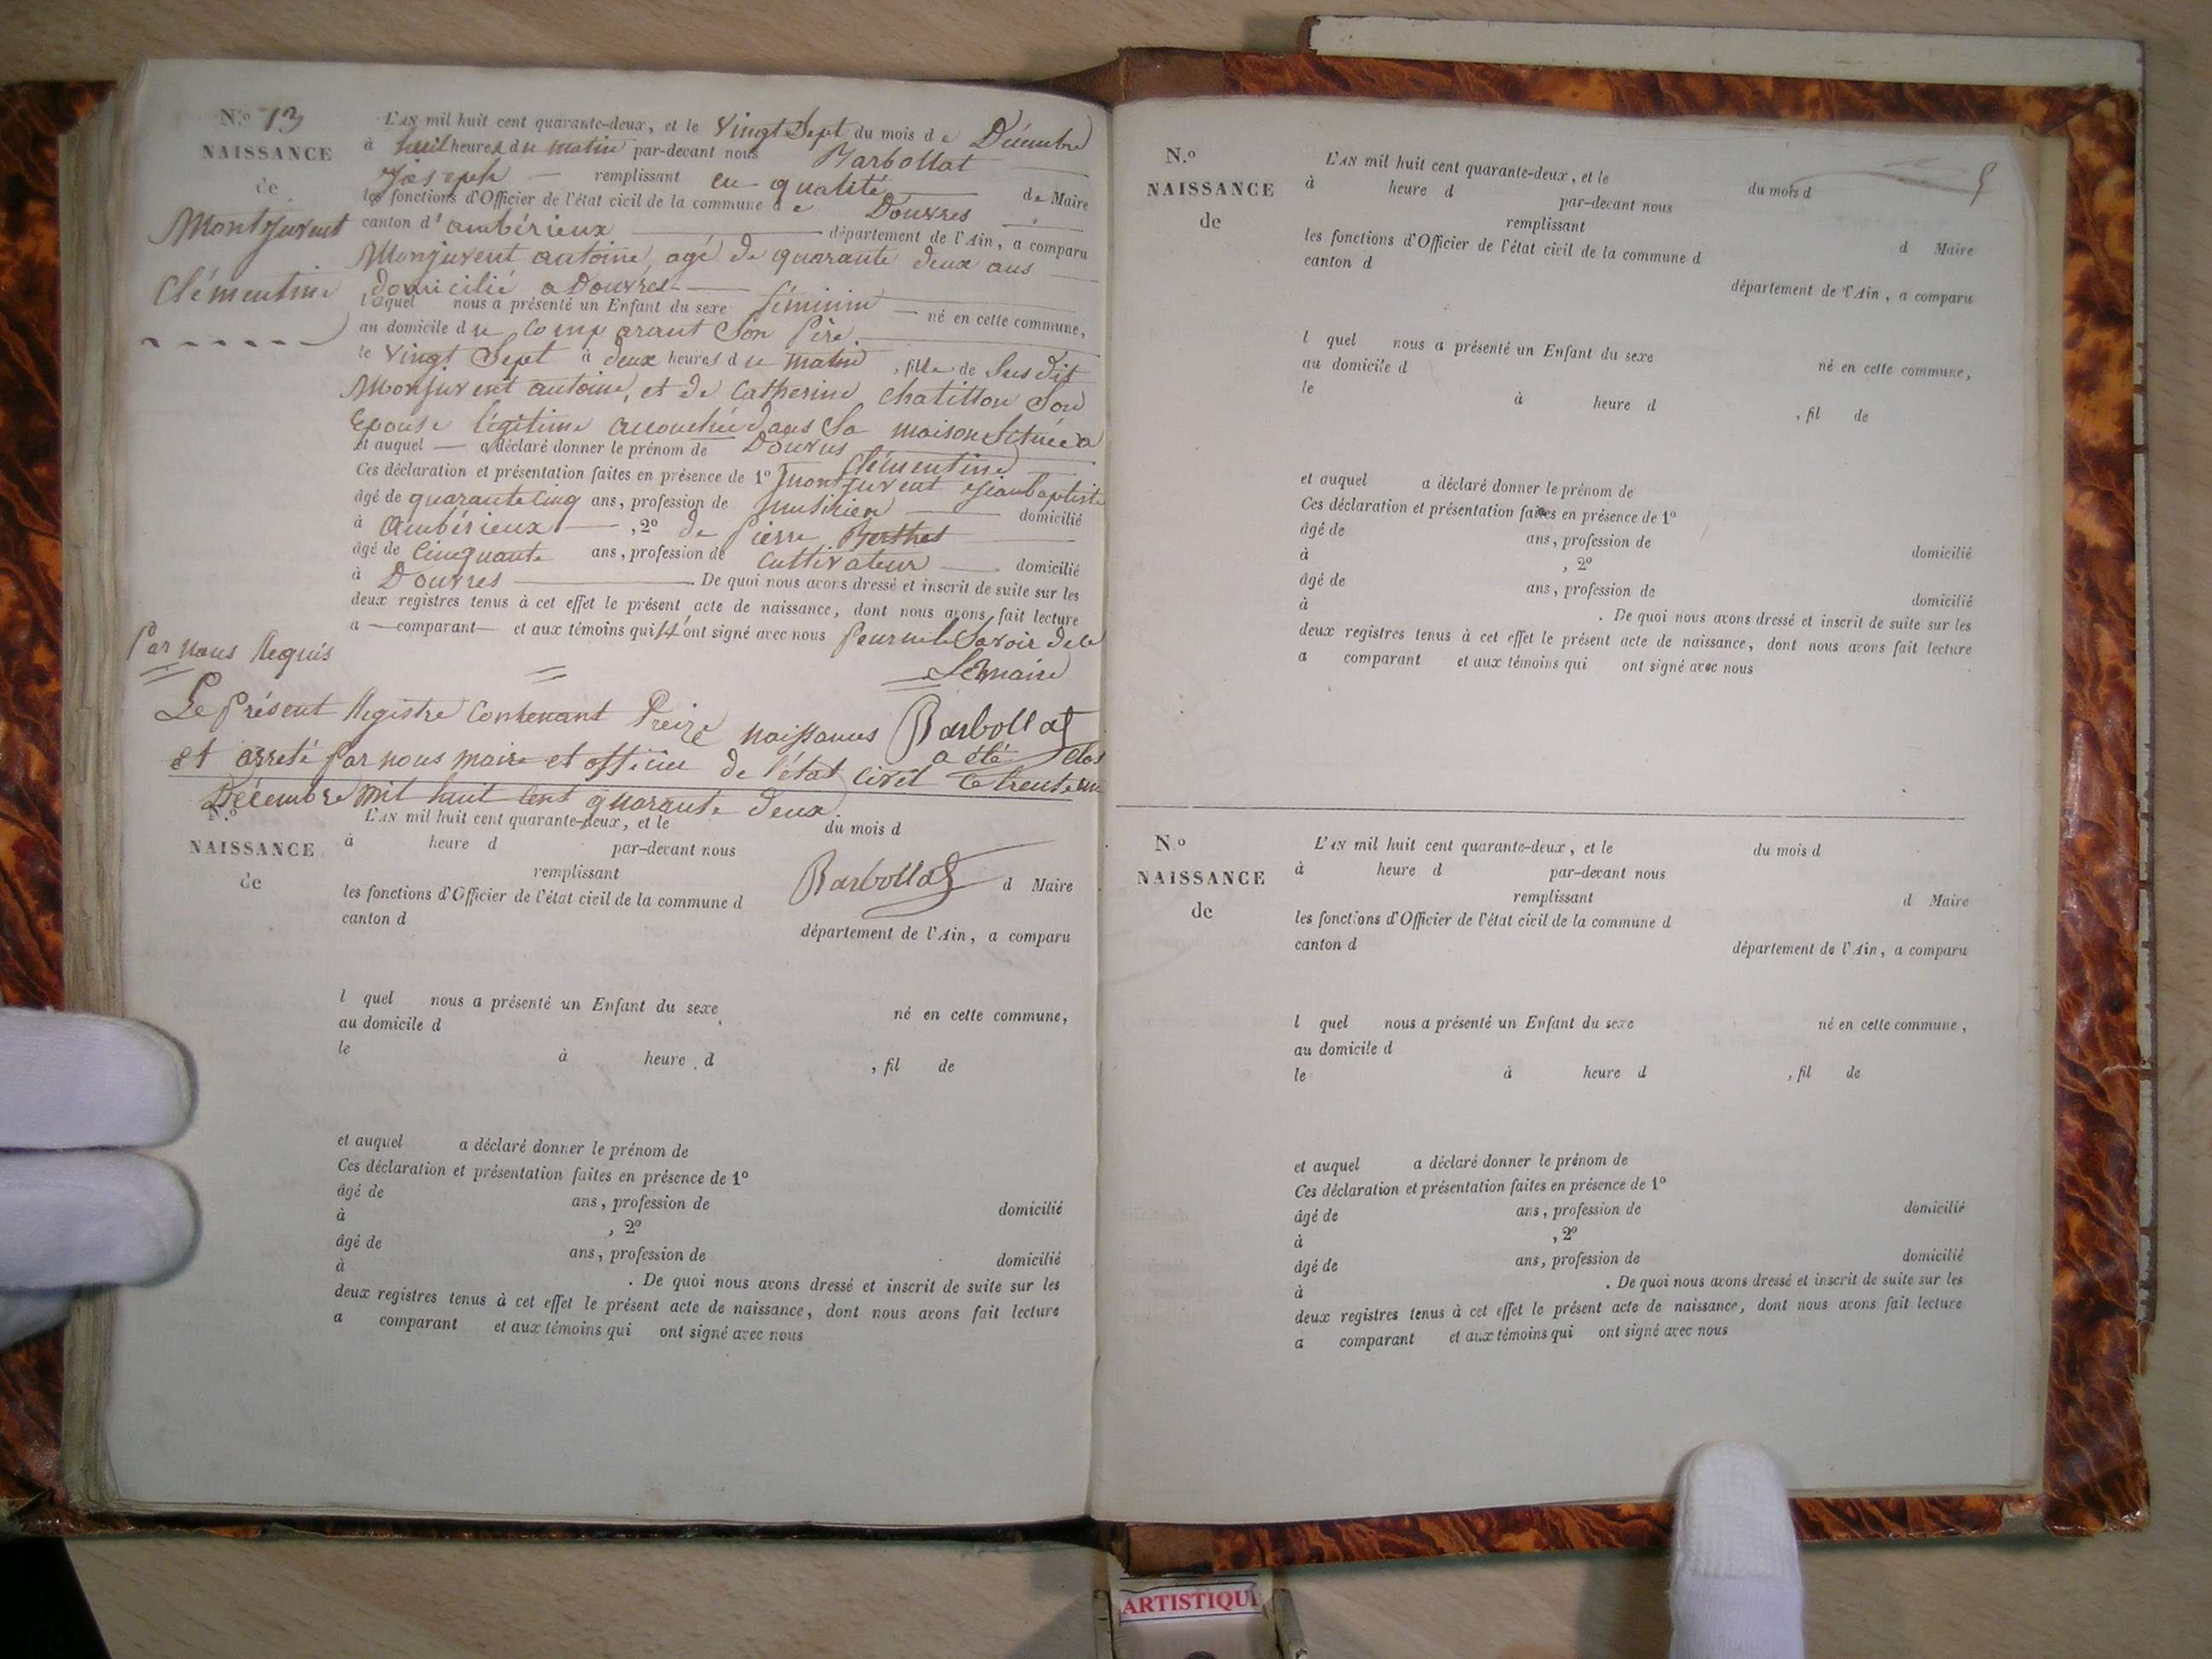 N.º 13
NAISSANCE
de
Montjuvent
Clémentine
L'AN mil huit cent quarante-deux, et le Vingt Sept du mois de Décembre
à huit heures du matin par-devant nous Barbollat
Joseph remplissant en qualité de Maire
les fonctions d'Officier de l'état civil de la commune de Douvres
canton d'ambérieux département de l'Ain, a comparu
Monjuvent antoine, agé de quarante deux ans
domicilié a Douvres
lequel nous a présenté un Enfant du sexe féminin né en cette commune,
au domicile du Comparant Son Père
le Vingt Sept à deux heures du matin, fille de Susdit
Monjuvent antoine, et de Catherine chatillon Son
Epouse légitime accouchée dans Sa maison Située a
Douvres
et auquel a déclaré donner le prénom de Clémentine
Ces déclaration et présentation faites en présence de 1º Montjuvent Jeanbaptiste
âgé de quarante Cinq ans, profession de musicien domicilié
à Ambérieux, 2º de Pierre Berthet
âgé de Cinquante ans, profession de Cultivateur domicilié
à Douvres. De quoi nous avons dressé et inscrit de suite sur les
deux registres tenus à cet effet le présent acte de naissance, dont nous avons fait lecture
a comparant et aux témoins qui n'ont signé avec nous Pour ne le Savoir de ce
Par nous Requis
Le Maire
Barbollat
Le Présent Registre Contenant Treize naissances a été Clos
et arreté par nous maire et officier de l'état Civil Ce trente un
Décembre mil huit Cent quarante deux.
Barbollat
N.º
NAISSANCE
de
L'AN mil huit cent quarante-deux, et le du mois d
à heure d par-devant nous
remplissant d Maire
les fonctions d'Officier de l'état civil de la commune d
canton d
département de l'Ain, a comparu
l quel nous a présenté un Enfant du sexe né en cette commune,
au domicile d
le à heure d , fil de
et auquel a déclaré donner le prénom de
Ces déclaration et présentation faites en présence de 1º
âgé de ans, profession de domicilié
à , 2º
âgé de ans, profession de domicilié
à . De quoi nous avons dressé et inscrit de suite sur les
deux registres tenus à cet effet le présent acte de naissance, dont nous avons fait lecture
a comparant et aux témoins qui ont signé avec nous
N.º
NAISSANCE
de
L'AN mil huit cent quarante-deux, et le du mois d
à heure d par-devant nous
remplissant d Maire
les fonctions d'Officier de l'état civil de la commune d
canton d
département de l'Ain, a comparu
l quel nous a présenté un Enfant du sexe né en cette commune,
au domicile d
le à heure d , fil de
et auquel a déclaré donner le prénom de
Ces déclaration et présentation faites en présence de 1º
âgé de ans, profession de domicilié
à , 2º
âgé de ans, profession de domicilié
à . De quoi nous avons dressé et inscrit de suite sur les
deux registres tenus à cet effet le présent acte de naissance, dont nous avons fait lecture
a comparant et aux témoins qui ont signé avec nous
N.º
NAISSANCE
de
L'AN mil huit cent quarante-deux, et le du mois d
à heure d par-devant nous
remplissant d Maire
les fonctions d'Officier de l'état civil de la commune d
canton d département de l'Ain, a comparu
l quel nous a présenté un Enfant du sexe né en cette commune,
au domicile d
le à heure d , fil de
et auquel a déclaré donner le prénom de
Ces déclaration et présentation faites en présence de 1º
âgé de ans, profession de domicilié
à , 2º
âgé de ans, profession de domicilié
à . De quoi nous avons dressé et inscrit de suite sur les
deux registres tenus à cet effet le présent acte de naissance, dont nous avons fait lecture
a comparant et aux témoins qui ont signé avec nous
ARTISTIQU